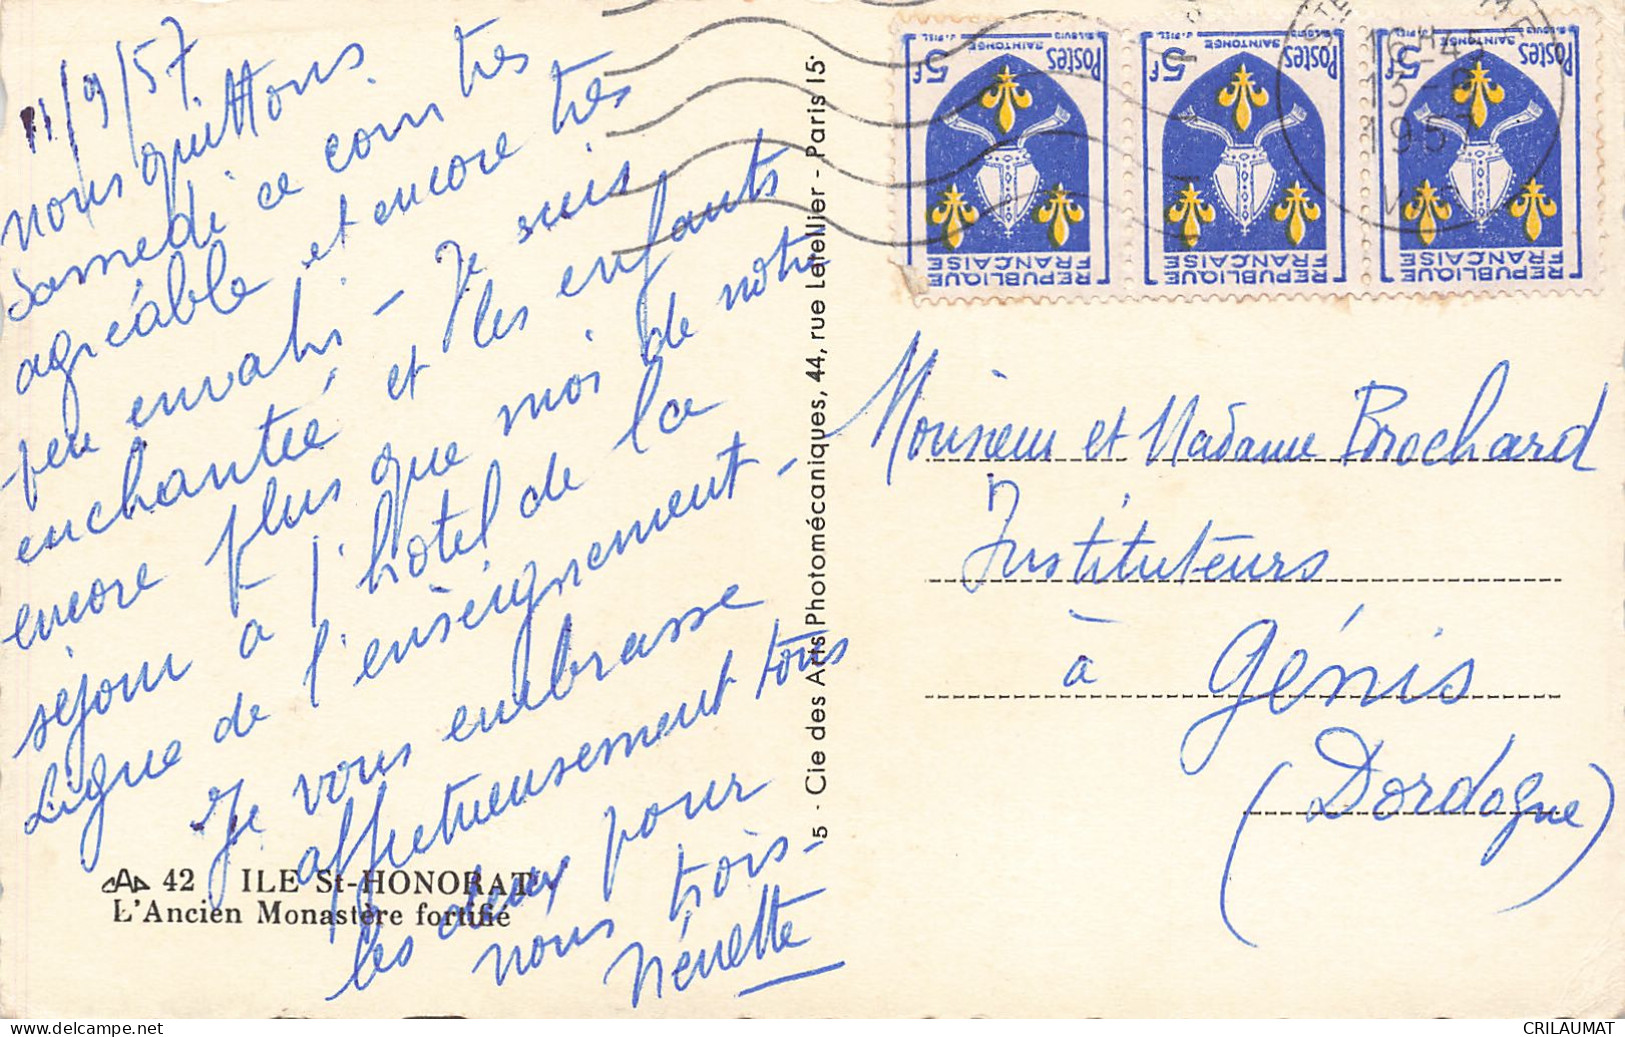 11/9/57
nous quittons
Samedi ce coin très
agréable et encore très
peu envahi - Je suis
enchantée et les enfants
encore plus que moi de notre
séjour à l'hôtel de la
Ligue de l'enseignement -
Je vous embrasse
affectueusement tous
les deux pour
nous trois -
Nénette
42 ILE St-HONORAT
L'Ancien Monastère fortifié
5 - Cie des Arts Photomécaniques, 44, rue Letellier - Paris 15e
Postes 5f
SAINTONGE
REPUBLIQUE
FRANÇAISE
Postes 5f
SAINTONGE
REPUBLIQUE
FRANÇAISE
Postes 5f
SAINTONGE
REPUBLIQUE
FRANÇAISE
16H45
13-9
1957
Monsieur et Madame Brochard
Instituteurs
à Génis
(Dordogne)
www.delcampe.net
CRILAUMAT